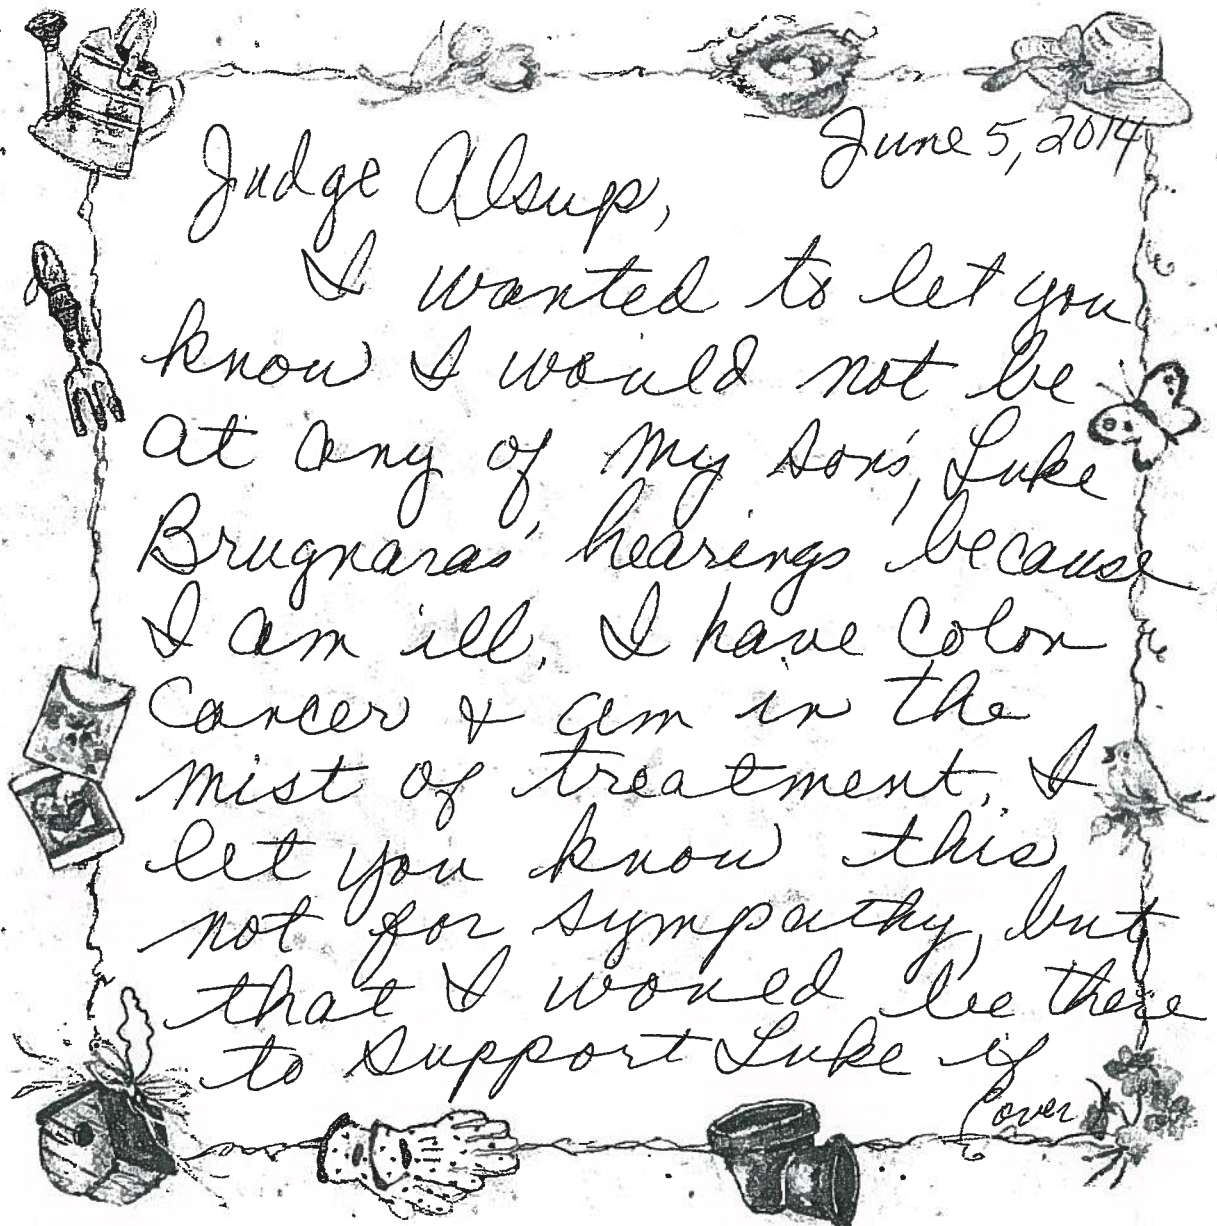 June 5, 2014
Judge Alsup,
I wanted to let you
know I would not be
at any of my son's, Luke
Brugnaras' hearings because
I am ill. I have Colon
Cancer & am in the
mist of treatment. I
let you know this,
not for sympathy, but
that I would be there
to support Luke if
(over)